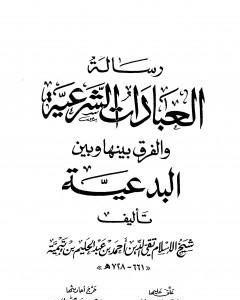 رسالة
العبارات الشرعية
والفرق بينها وبين
البدعية
تأليف
شيخ الإسلام تقي الدين أحمد بن عبد الحليم بن تيمية
«٦٦١ - ٧٢٨ هـ»